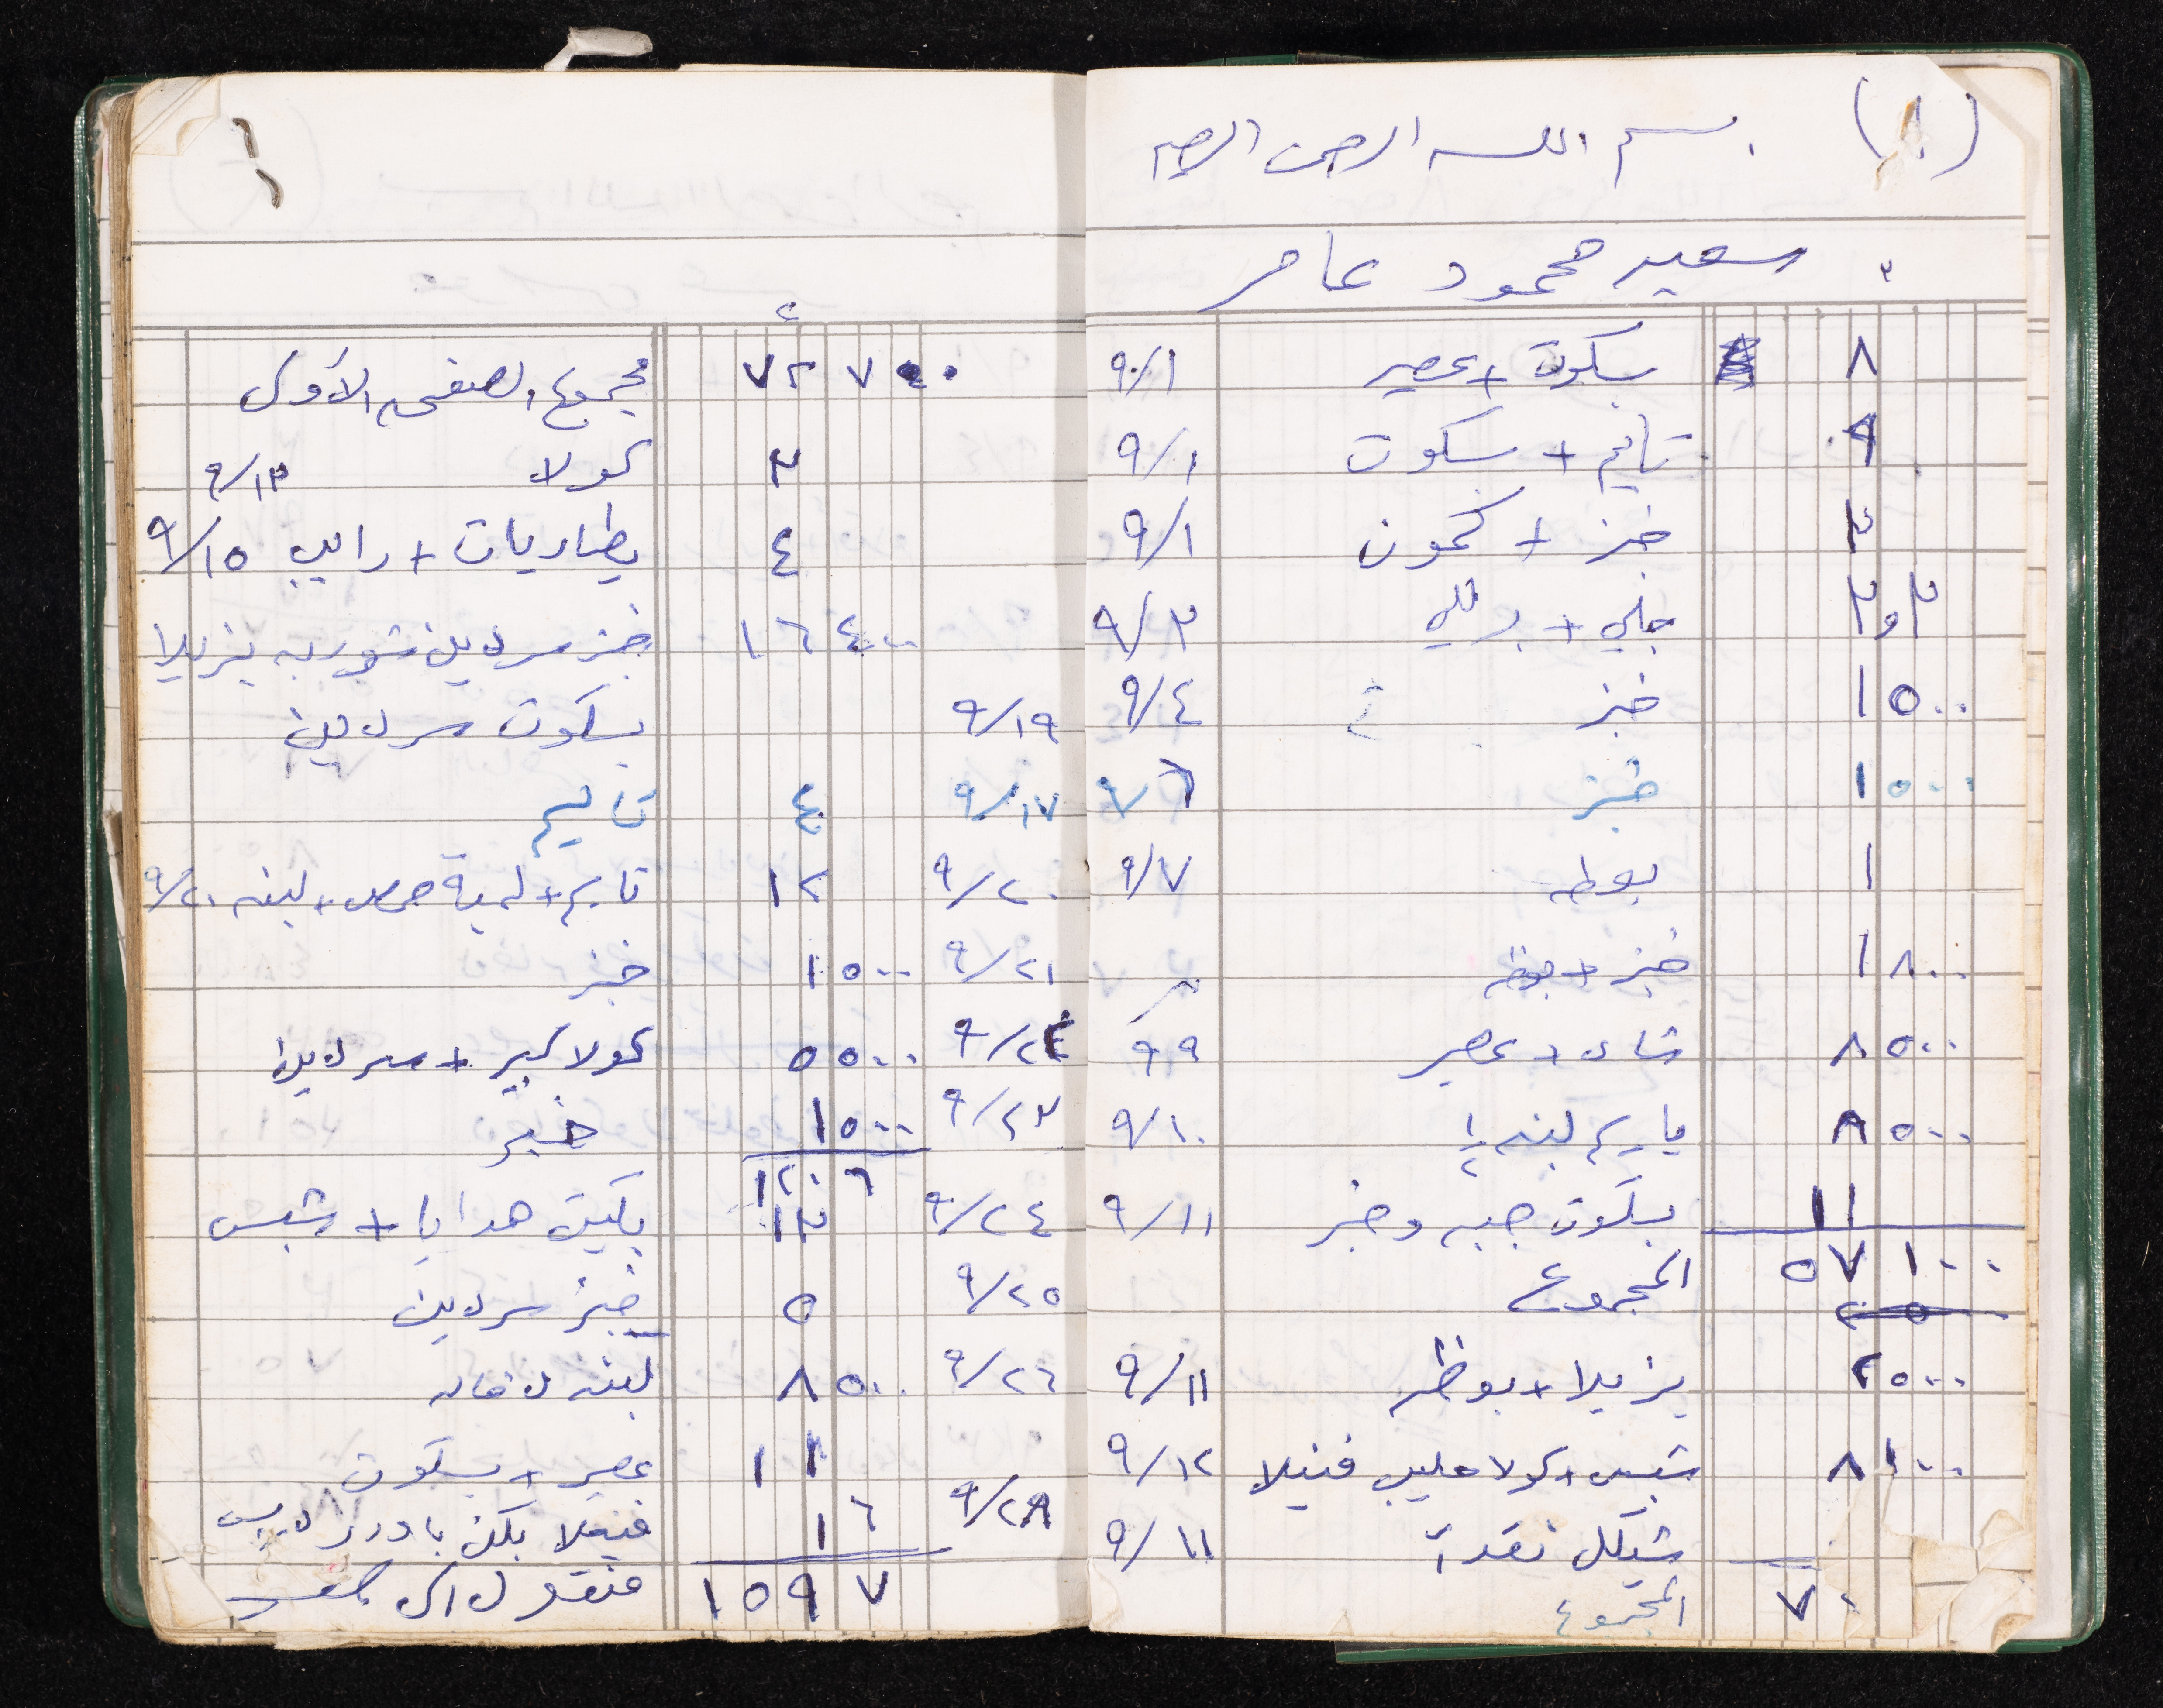 (١) بسم الله الرحمن الرحيم
سعيد محمود عامر
٨ بسكوت + عصير ٩/١
٩ تايم + بسكوت ٩/١
٣ خبز + كمون ٩/١
٣و٣ جلي + برالي ٩/٣
١ ٥٠٠ خبز ٩/٤
١ ٥٠٠ خبز ٩/٦
١ بوظه ٩/٧
١ ٨٠٠ خبز + بوظه
٨ ٥٠٠ شاي + عصير ٩/٩
٨ ٥٠٠ مايم لبنه ١/٢ ٩/١٠
١١ بسكوت جبنه وخبز ٩/١١
٥٧ ١٠٠ المجموع
٢ ٥٠٠ بزيلا + بوظه ٩/١١
٨ ١٠٠ شبس + كولا حليب فنيلا ٩/١٢
شيكل نقدآ ٩/١١
٧٠ المجموع
٢
مجموع الصفحه الأولى ٧٢ ٧٠٠
كولا ٩/١٣ ٣
بطاريات + رايب ٩/١٥ ٤
خبز سردين شوربه بزيلا ١٦ ٤٠٠
بسكوت سردين ٩/١٩
تايم ٤ ٩/١٧
تايم + لمبة حمص + لبنه ٩/٢٠ ١٢ ٩/٢٠
خبز ١ ٥٠٠ ٩/٢١
كولا كبير + سردين ٥ ٥٠٠ ٩/٢٤
خبز ١ ٥٠٠ ٩/٢٣
١٢٠ ٦
بكيت هدايا + شبس ١٣ ٩/٢٤
خبز سردين ٥ ٩/٢٥
لبنه ٨ ٥٠٠ ٩/٢٦
عصير + بسكوت ١١
فنيلا بكن باودر ١٦ ٩/٢٨
منقول الى ١٥٩ ٧